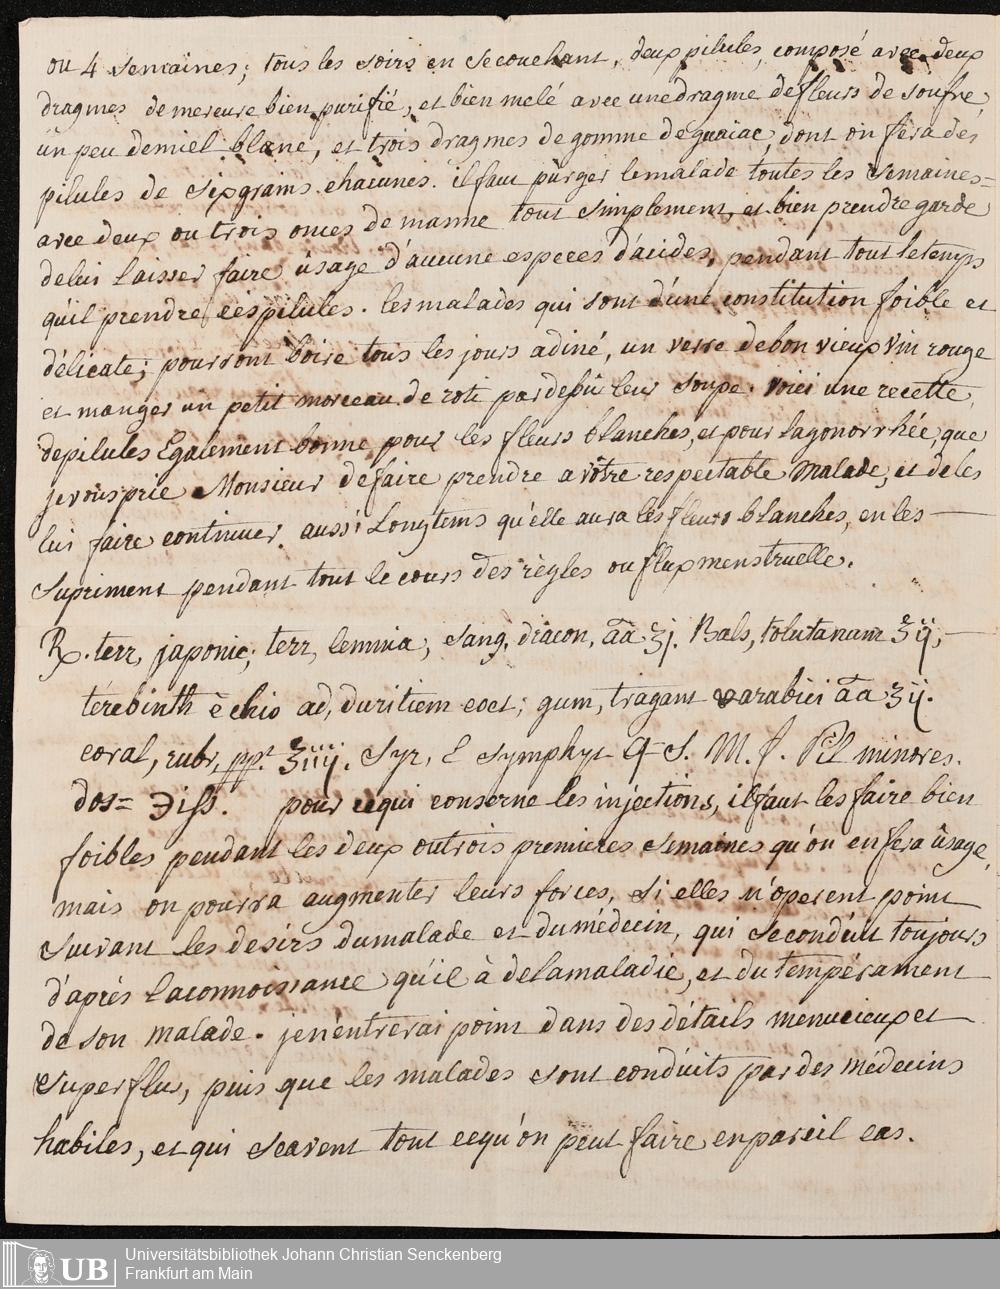 ou 4 semaines; tous les soirs en se couchant, deux pilules, composé avec deux
dragmes de mercure bien purifié, et bien melé avec une dragme de fleurs de soufre,
un peu de miel blanc, et trois dragmes de gomme de guaiac, dont on fera des
pilules de six grains chacunes. il faut purger le malade toutes les semaines=
avec deux ou trois onces de manne tout simplement, et bien prendre garde
de lui laisser faire usage d'aucune especes d'acides, pendant tout le temps
qu'il prendre ces pilules. les malades qui sont d'une constitution foible et
délicate; pourront boire tous les jours a diné, un verre de bon vieux vin rouge
et manger un petit morceau de roti par desu leur soupe. voici une recette,
de pilules Egalement bonne pour les fleurs blanches, et pour la gonorrhée, que
je vous prie Monsieur de faire prendre a vôtre respectable malade, et de les
lui faire continuer aussi Longtems qu'elle aura les fleurs blanches, en les —
supriment pendant tout le cours des règles ou flux menstruelle.
℞. terr, japonic; terr, lemnia, sang, dracon, āā ʒj. Bals, tolutanum ʒij, —
térebinth è chio ad, duritiem coct; gum, tragant v arabici āā ʒij.
coral, rubr, ppt. ʒiiij. Syr, è symphyt q S. M. f. Pil minores.
dos= ℈iſs. pour ce qui conserne les injections, il faut les faire bien
foibles pendant les deux ou trois premieres semaines qu'on en fera usage,
mais on pourra augmenter leurs forces, si elles n'operent point
suivant les desirs du malade et du médecin, qui se conduit toujours
d'après la connoissance qu'il à de la maladie, et du tempérament
de son malade. je n'entrerai point dans des détails menucieux et
superflus, puis que les malades sont conduits par des médecins
habiles, et qui scavent tout ce qu'on peut faire en pareil cas.
UB Universitätsbibliothek Johann Christian Senckenberg
Frankfurt am Main